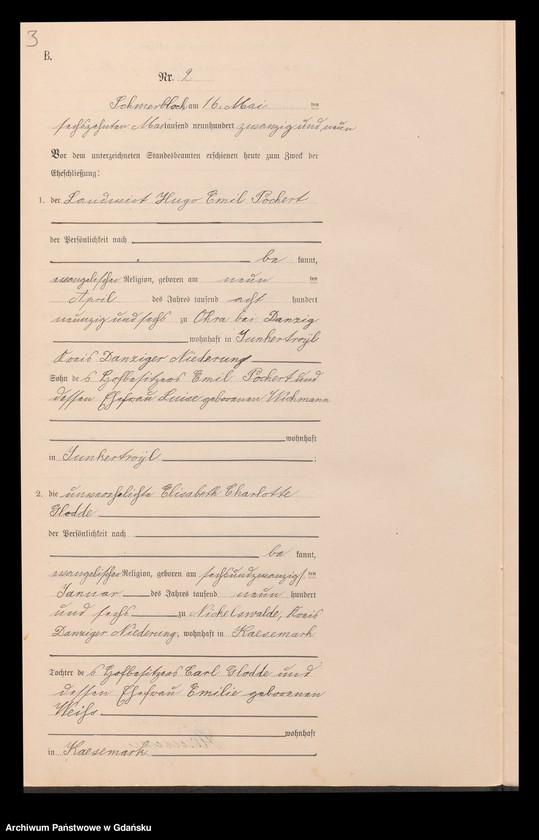 3
B.
Nr. 2
Schmerblock am 16. Mai ten
sechszehnten Mai tausend neunhundert zwanzig und neun
Vor dem unterzeichneten Standesbeamten erschienen heute zum Zweck der
Eheschließung:
1. der Landwirt Hugo Emil Pockert
der Persönlichkeit nach
be kannt,
evangelischer Religion, geboren am neun ten
April des Jahres tausend acht hundert
neunzig und sechs zu Ohra bei Danzig
wohnhaft in Junkertroyl
Kreis Danziger Niederung
Sohn des Hofbesitzers Emil Pockert und
dessen Ehefrau Luise geborenen Wichmann
wohnhaft
in Junkertroyl ;
2. die unverehelichte Elisabeth Charlotte
Glodde
der Persönlichkeit nach
be kannt,
evangelischer Religion, geboren am sechsundzwanzigs ten
Januar des Jahres tausend neun hundert
und sechs zu Nickelswalde, Kreis
Danziger Niederung, wohnhaft in Kaesemark
Tochter des Hofbesitzers Carl Glodde und
dessen Ehefrau Emilie geborenen
Weiss
wohnhaft
in Kaesemark
Archiwum Państwowe w Gdańsku